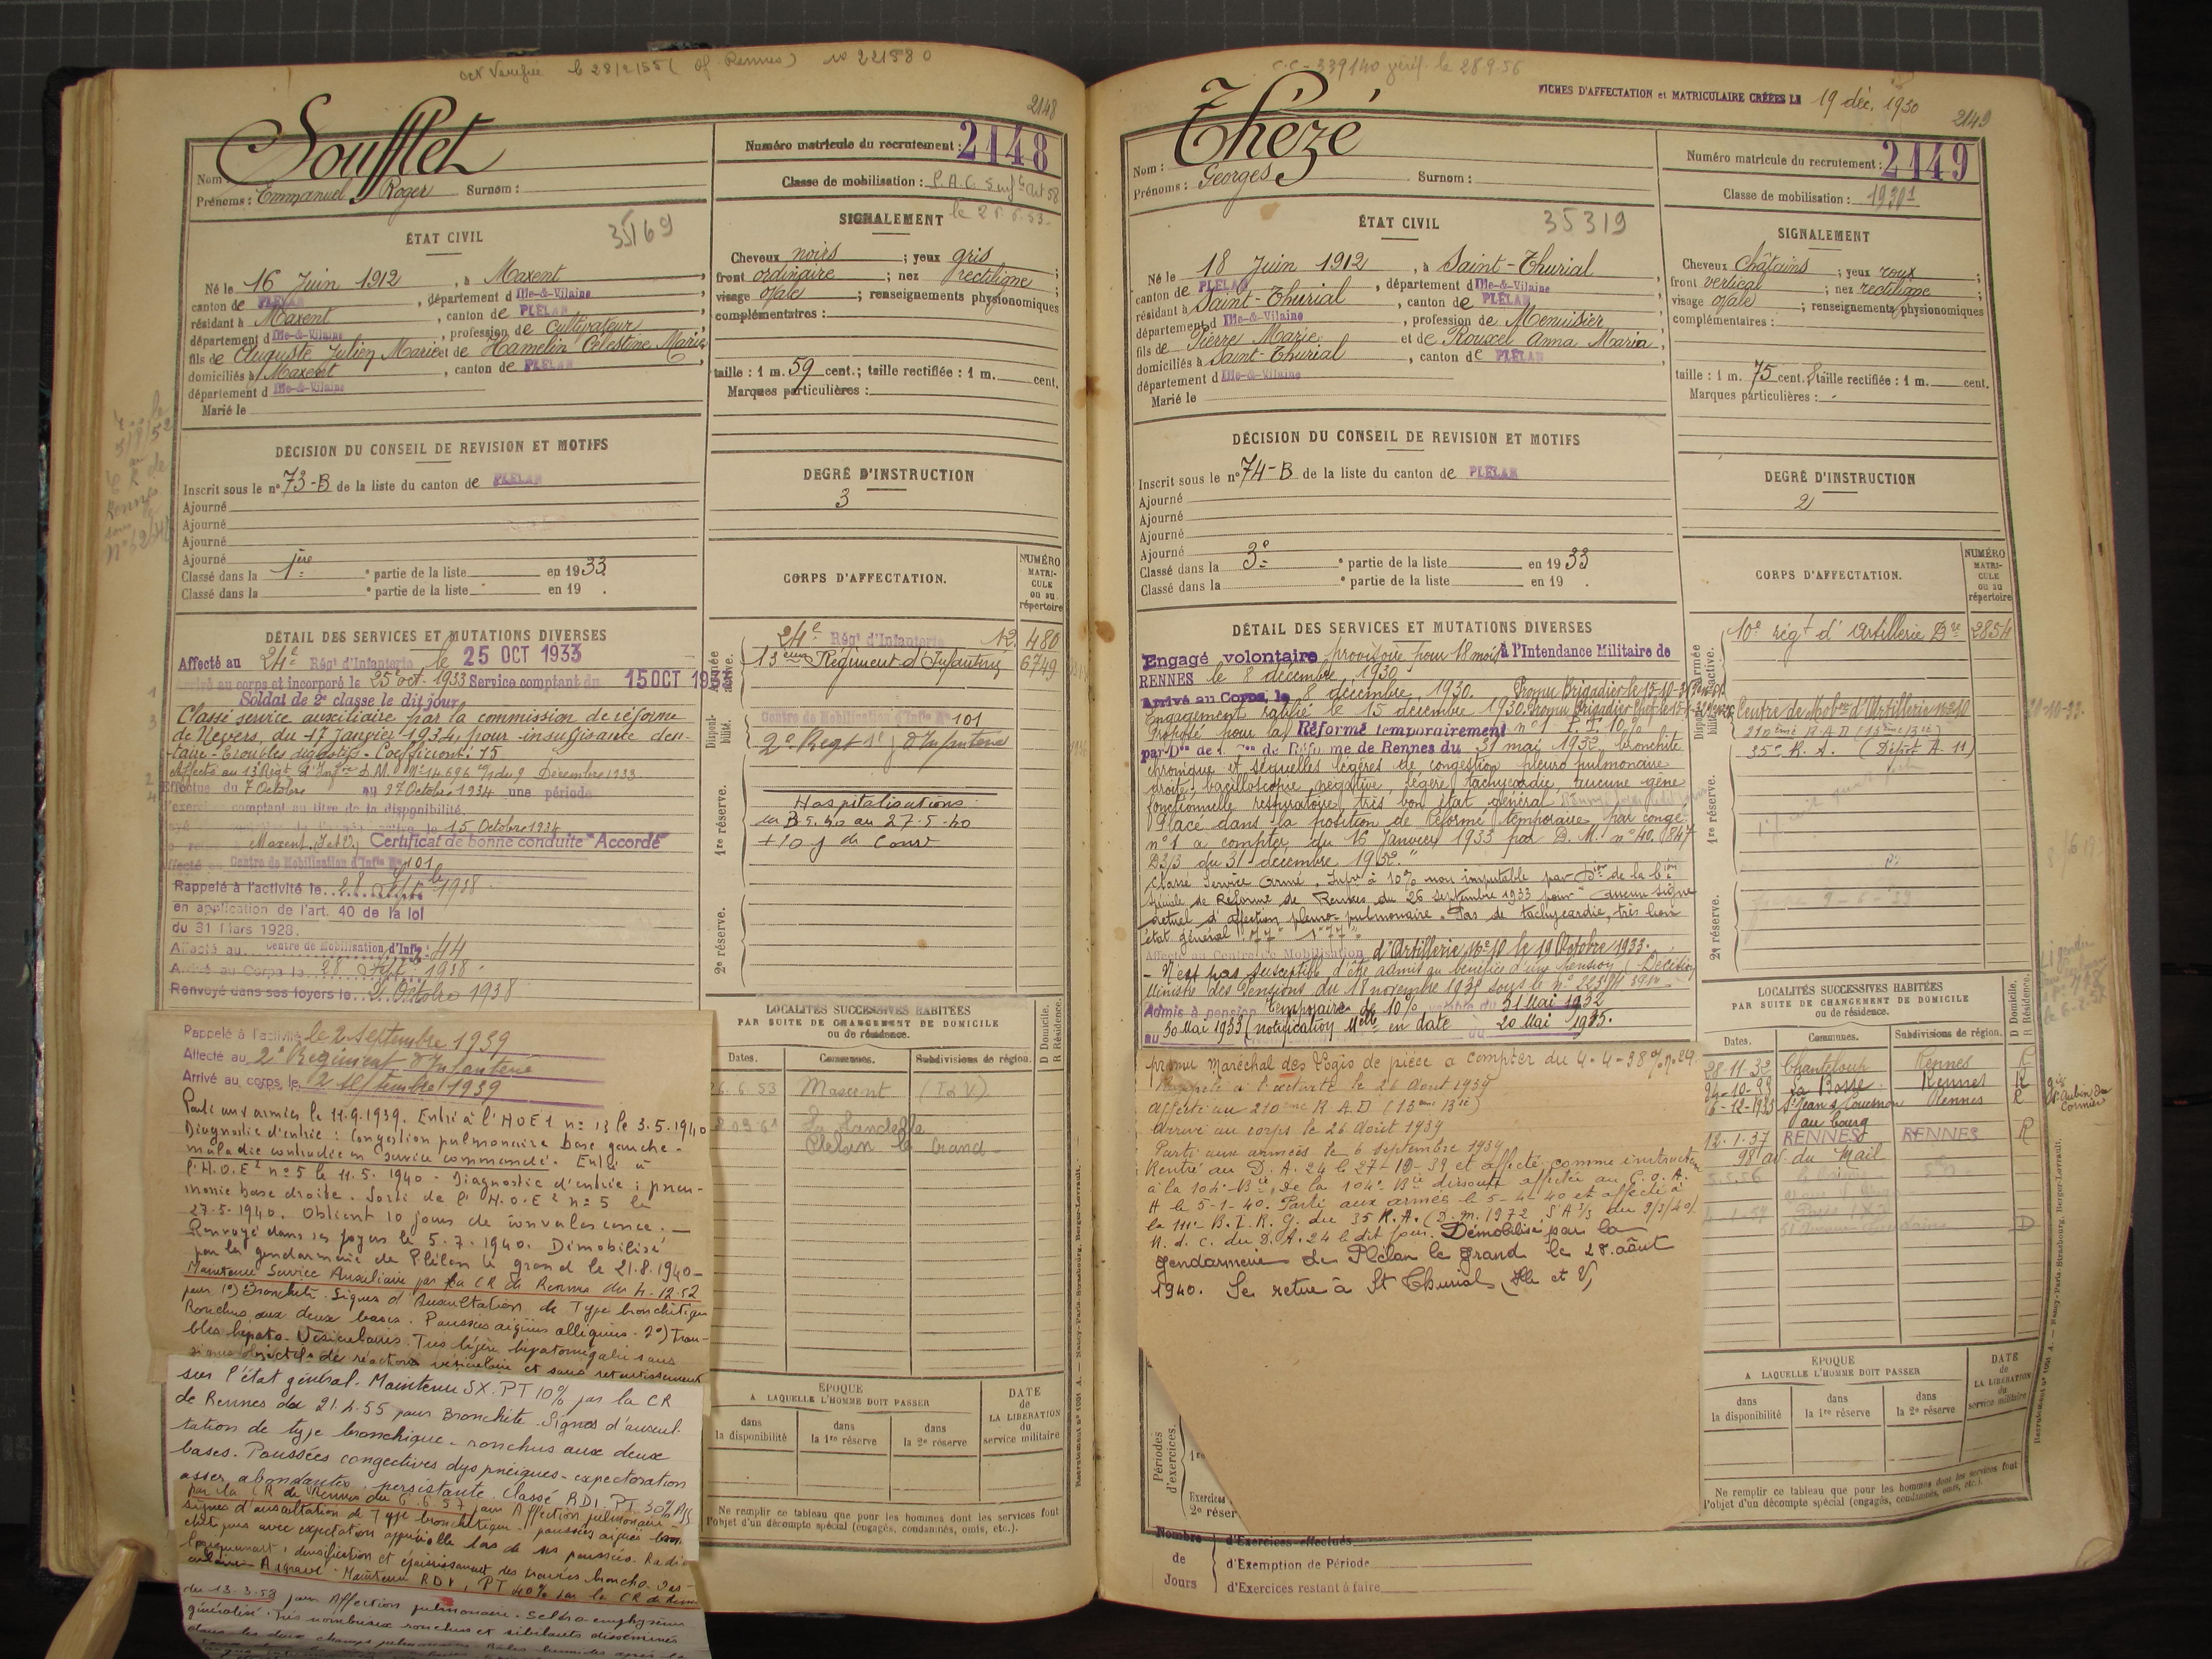 Oct Vérifiée le 28/2/55 (Of. Rennes) no 221580
2148
Soufflet
Nom :
Prénoms : Emmanuel Roger Surnom :
Numéro matricule du recrutement : 2148
Classe de mobilisation :
ÉTAT CIVIL
35169
Né le 16 Juin 1912, à Maxent,
canton de PLÉLAN, département d Ille-&-Vilaine
résidant à Maxent, canton de PLÉLAN,
département d Ille-&-Vilaine, profession de Cultivateur
fils de Auguste Julien Marie et de Hamelin Célestine Marie
domiciliés à Maxent, canton de PLÉLAN,
département d Ille-&-Vilaine
Marié le
SIGNALEMENT
Cheveux noirs ; yeux gris ;
front ordinaire ; nez rectiligne ;
visage ovale ; renseignements physionomiques
complémentaires :
taille : 1 m. 59 cent.; taille rectifiée : 1 m. cent.
Marques particulières :
DÉCISION DU CONSEIL DE REVISION ET MOTIFS
Inscrit sous le n° 73-B de la liste du canton de PLÉLAN
Ajourné
Ajourné
Ajourné
Ajourné
Classé dans la 1ère partie de la liste en 1933
Classé dans la e partie de la liste en 19 .
DEGRÉ D'INSTRUCTION
3
DÉTAIL DES SERVICES ET MUTATIONS DIVERSES
Affecté au 24e Régt d'Infanterie le 25 OCT 1933
Arrivé au corps et incorporé le 25 oct. 1933 Service comptant du 15 OCT 1933
Soldat de 2e classe le dit jour
Classé service auxiliaire par la commission de réforme
de Nevers, du 17 Janvier 1934, pour insuffisance den-
taire - Troubles digestifs - Coefficient : 15
Affecté au 13e Régt d'Infrie D.M. N° 14696 du 9 Décembre 1933
Effectue du 7 Octobre au 27 Octobre 1934 une période
d'exercice comptant au titre de la disponibilité.
le 15 Octobre 1934
Maxent, I et V, Certificat de bonne conduite "Accordé"
Affecté au Centre de Mobilisation d'Infie N° 101
Rappelé à l'activité le 28 Sept. 1938
en application de l'art. 40 de la loi
du 31 Mars 1928.
Affecté au Centre de Mobilisation d'Infie 44
Arrivé au Corps le 28 Sept. 1938
Renvoyé dans ses foyers le 2 Octobre 1938
Rappelé à l'activité le 2 septembre 1939
Affecté au 2e Régiment d'Infanterie
Arrivé au corps le 2 septembre 1939
Parti aux armées le 11.9.1939. Entré à l'HOE1 n° 13 le 3.5.1940
Diagnostic d'entrée : Congestion pulmonaire base gauche -
maladie contractée en service commandé. Entré à
l'H.O.E2 n° 5 le 11.5.1940 - Diagnostic d'entrée : pneu-
monie base droite. Sorti de l'H.O.E2 n° 5 le
27.5.1940. Obtient 10 jours de convalescence. -
Renvoyé dans ses foyers le 5.7.1940. Démobilisé
par la gendarmerie de Plélan le grand le 21.8.1940 -
Maintenu Service Auxiliaire par la CR de Rennes du 4-12-52
pour 1°) Bronchite. Signes d'Auscultation de Type bronchitique
Ronchus aux deux bases. Poussées aigües alléguées - 2°) Trou-
bles hépato-Vésiculaires. Très légère hépatomégalie sans
signes objectifs de réaction vésiculaire et sans retentissement
sur l'état général. Maintenu SX. PT 10% par la CR
de Rennes du 21.4.55 pour Bronchite. Signes d'auscul-
tation de type bronchique - ronchus aux deux
bases. Poussées congestives dyspnéiques - expectoration
assez abondante, persistante. Classé RD1. PT. 30%
par la CR de Rennes du 6.6.57 pour Affection pulmonaire -
signes d'auscultation de Type bronchitique - poussées aigües bron-
chitiques avec expectoration appréciable lors de ses poussées. Radio-
logiquement : densification et épaississement des travées broncho-vas-
culaires - Aggravé - Maintenu RD1, PT 40% par la CR de Rennes
du 13.3.58 pour Affection pulmonaire. Scléro-emphysème
généralisé. Très nombreux ronchus et sibilants disséminés
dans les deux champs pulmonaires.
CORPS D'AFFECTATION.
NUMÉRO MATRI-CULE ou au répertoire
Armée active.
24e Régt d'Infanterie 12. 480
13ème Régiment d'Infanterie 6749
Disponi-bilité.
Centre de Mobilisation d'Infie N° 101
2e Regt d'Infanterie
1re réserve.
Hospitalisations
du 3.5.40 au 27-5-40
+ 10 j de conv
2e réserve.
LOCALITÉS SUCCESSIVES HABITÉES
PAR SUITE DE CHANGEMENT DE DOMICILE
ou de résidence.
D Domicile. R Résidence.
Dates. Communes. Subdivisions de région.
26.6.53 Maxent (I&V)
La Landelle
Plélan le Grand
ÉPOQUE
A LAQUELLE L'HOMME DOIT PASSER
dans la disponibilité
dans la 1re réserve
dans la 2e réserve
DATE de LA LIBÉRATION du service militaire
Ne remplir ce tableau que pour les hommes dont les services font
l'objet d'un décompte spécial (engagés, condamnés, omis, etc.).
C.C - 339140 vérif. le 28-9-56
FICHES D'AFFECTATION et MATRICULAIRE CRÉÉES LE 19 déc. 1930
2149
Thézé
Nom :
Prénoms : Georges Surnom :
Numéro matricule du recrutement : 2149
Classe de mobilisation : 1930
ÉTAT CIVIL
35319
Né le 18 Juin 1912, à Saint-Thurial,
canton de PLÉLAN, département d Ille-&-Vilaine
résidant à Saint-Thurial, canton de PLÉLAN,
département d Ille-&-Vilaine, profession de Menuisier
fils de Pierre Marie et de Rouxel Anna Maria,
domiciliés à Saint-Thurial, canton de PLÉLAN
département d Ille-&-Vilaine
Marié le
SIGNALEMENT
Cheveux châtains ; yeux roux ;
front vertical ; nez rectiligne ;
visage ovale ; renseignements physionomiques
complémentaires :
taille : 1 m. 75 cent.; taille rectifiée : 1 m. cent.
Marques particulières : -
DÉCISION DU CONSEIL DE REVISION ET MOTIFS
Inscrit sous le n° 74-B de la liste du canton de PLÉLAN
Ajourné
Ajourné
Ajourné
Ajourné
Classé dans la 3e partie de la liste en 1933
Classé dans la e partie de la liste en 19 .
DEGRÉ D'INSTRUCTION
2
DÉTAIL DES SERVICES ET MUTATIONS DIVERSES
Engagé volontaire provisoire pour 18 mois à l'Intendance Militaire de
RENNES le 8 décembre 1930
Arrivé au Corps, le 8 décembre 1930. Promu Brigadier le 15-10-31
Engagement ratifié le 15 décembre 1930. Promu Brigadier Chef
Proposé pour la Réforme temporairement n° 1 P.T. 10%
par Don de la Con de Réforme de Rennes du 31 mai 1932 bronchite
chronique et séquelles légères de congestion pleuro pulmonaire
droite, bacilloscopie négative, légère tachycardie, aucune gêne
fonctionnelle respiratoire, très bon état général
Placé dans la position de réforme temporaire par congé
n° 1 à compter du 16 Janvier 1933 par D.M. n° 40.847
D3/3 du 31 décembre 1932."
Classé Service Armé, Infre à 10% non imputable par Don de la Con
spéciale de Réforme de Rennes du 26 septembre 1933 pour "aucun signe
actuel d'affection pleuro-pulmonaire. Pas de tachycardie, très bon
état général"
Affecté au Centre de Mobilisation d'Artillerie N° 10 le 19 Octobre 1933.
- N'est pas susceptible d'être admis au bénéfice d'une pension (Décision
Ministre des Pensions du 18 novembre 1935 sous le n°
Admis à pension temporaire de 10% du 31 Mai 1932
au 30 Mai 1933 (notification Melle en date du 20 Mai 1935.
promu Maréchal des Logis de pièce à compter du 4-4-38
Rappelé à l'activité le 26 Août 1939
Affecté au 210ème R.A.D (13ème Bie)
Arrivé au corps le 26 Août 1939
Parti aux armées le 6 septembre 1939
Rentré au D.A. 24 le 27-12-39 et affecté comme instructeur
à la 104e Bie. De la 104e Bie dissoute affecté au C.O.A.
A le 5-1-40. Parti aux armées le 5-4-40 et affecté à
la 111e B.T.R.G. du 35 R.A. (D.M. 1972 S A 3/3 du 9/3/40)
N.d.c. du D.A. 24 le dit jour. Démobilisé par la
gendarmerie de Plélan le grand le 28 août
1940. Se retire à St Thurial (Ille et V)
CORPS D'AFFECTATION.
NUMÉRO MATRI-CULE ou au répertoire
Armée active.
10e régt d'Artillerie Dre 2854
Disponi-bilité.
Centre de Mobon d'Artillerie N°10
210ème R A D (13ème Bie)
35e R.A. (Dépôt A. 11)
1re réserve.
2e réserve.
LOCALITÉS SUCCESSIVES HABITÉES
PAR SUITE DE CHANGEMENT DE DOMICILE
ou de résidence.
D Domicile. R Résidence.
Dates. Communes. Subdivisions de région.
28-11-32 Chanteloup Rennes R
La Bosse Rennes R
6-12-1933 St Jean s/ Couesnon Rennes R
au bourg
12.1.37 RENNES RENNES R
98 av. du Mail
5.5.56
ÉPOQUE
A LAQUELLE L'HOMME DOIT PASSER
dans la disponibilité
dans la 1re réserve
dans la 2e réserve
DATE de LA LIBÉRATION du service militaire
Ne remplir ce tableau que pour les hommes dont les services font
l'objet d'un décompte spécial (engagés, condamnés, omis, etc.).
Périodes d'exercices.
Exercices
2e réser
Nombre de Jours
d'Exercices effectués
d'Exemption de Période
d'Exercices restant à faire